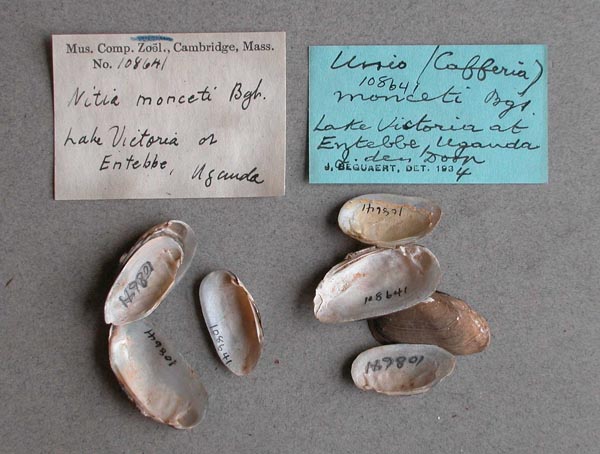 Mus. Comp. Zoöl., Cambridge, Mass.
No. 108641
Nitia monceti Bgt.
Lake Victoria at
Entebbe, Uganda
Unio (Cafferia)
108641
monceti Bgt.
Lake Victoria at
Entebbe, Uganda
J. den Doop
J. BEQUAERT, DET. 1934
108641
108641
108641
108641
108641
108641